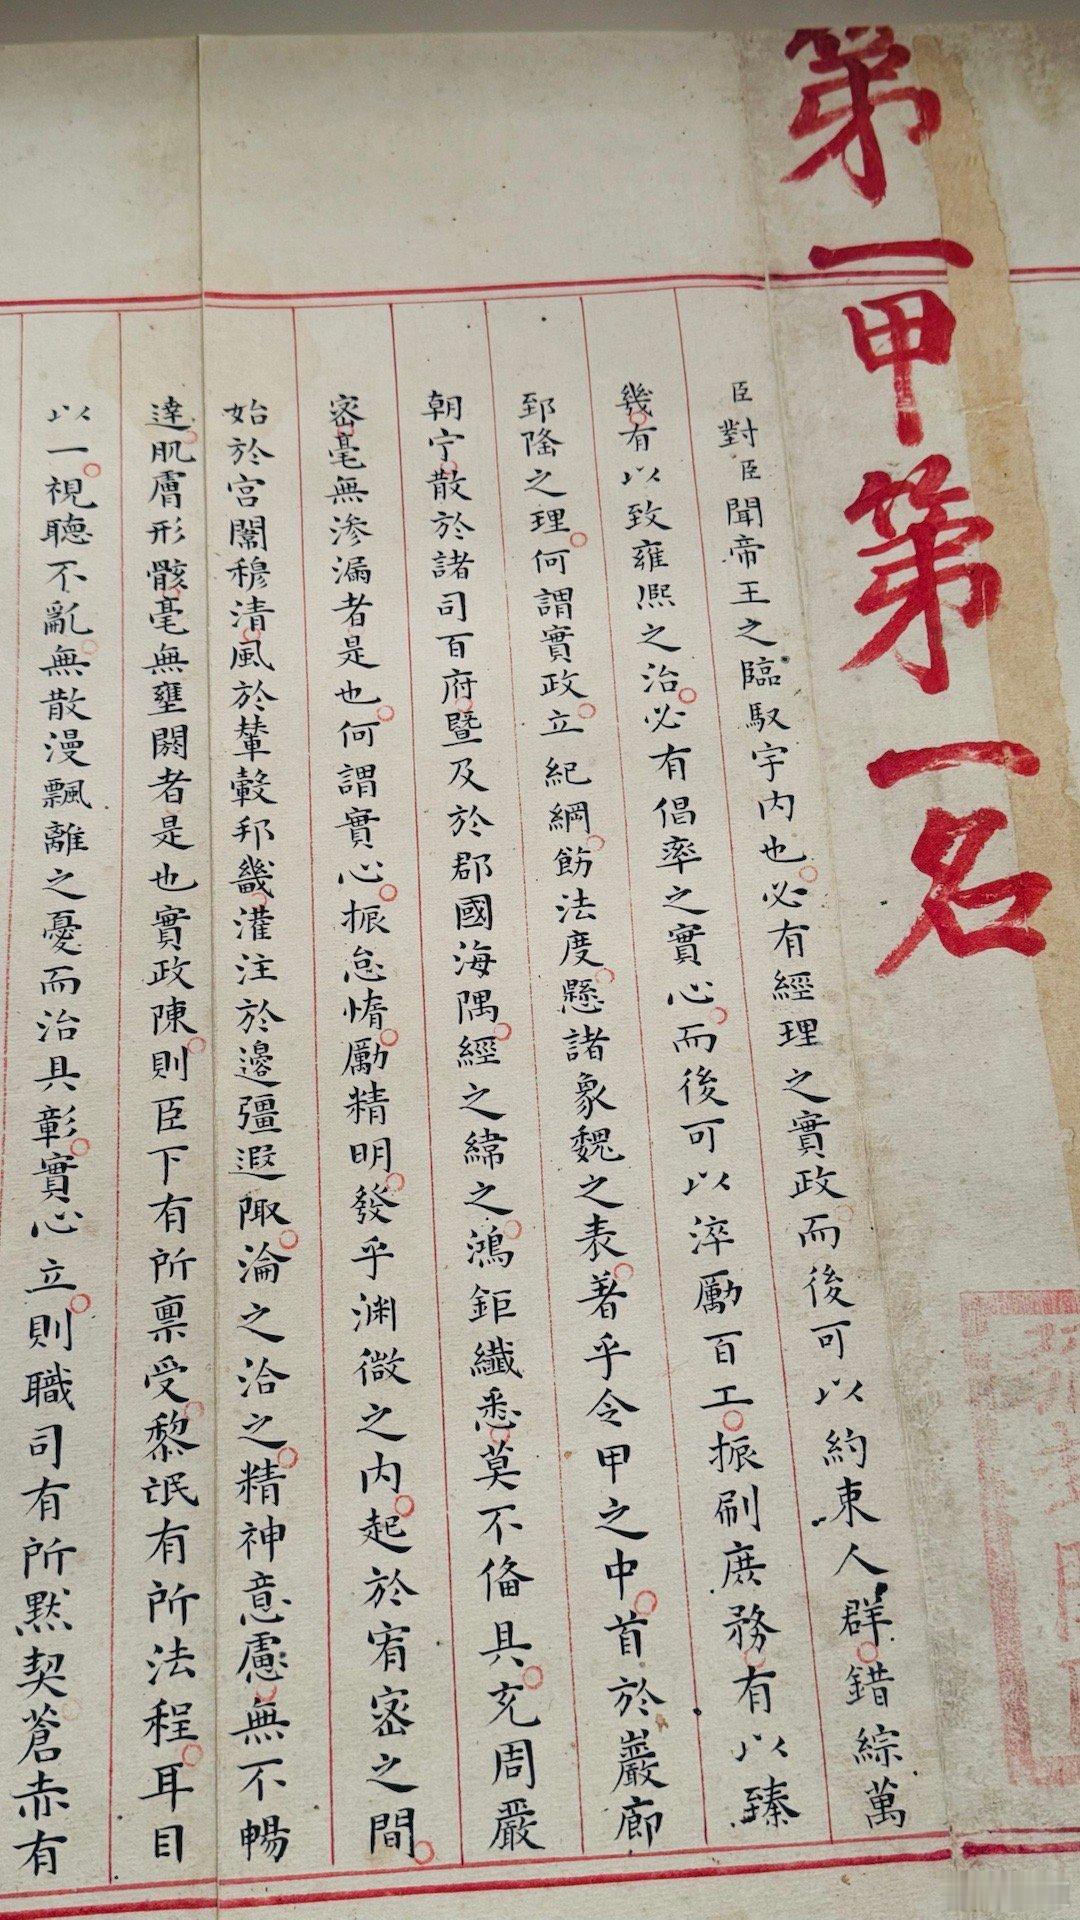 第一甲第一名
臣對臣聞帝王之臨馭宇内也必有經理之實政而後可以約束人群錯綜萬
幾有以致雍熙之治必有倡率之實心而後可以淬勵百工振刷庶務有以臻
郅隆之理何謂實政立紀綱飭法度懸諸象魏之表著乎令甲之中首於巖廊
朝宁散於諸司百府暨及於郡國海隅經之緯之鴻鉅纖悉莫不備具充周嚴
密毫無滲漏者是也何謂實心振怠惰勵精明發乎淵微之内起於宥密之間
始於宮闈穆清風於輦轂邦畿灌注於邊疆遐陬淪之洽之精神意慮無不暢
達肌膚形骸毫無壅閼者是也實政陳則臣下有所禀受黎氓有所法程耳目
以一視聽不亂無散漫飄離之憂而治具彰實心立則職司有所默契蒼赤有